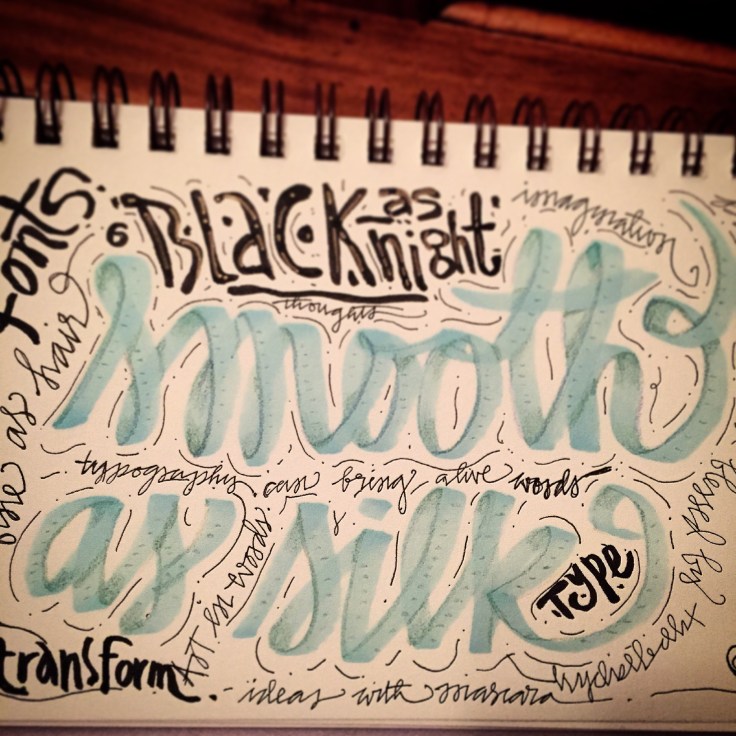 fonts.
BLACK as night
6
imagination
thoughts
smooth
as hair
typography can bring alive words
as silk
Type
Art in words
transform
ideas with mascara